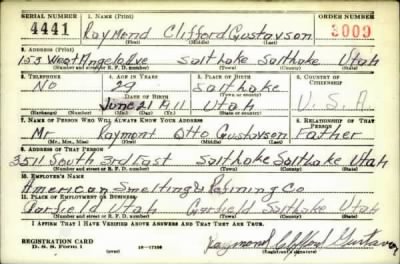 SERIAL NUMBER 1. NAME (Print) ORDER NUMBER
4441 Raymond Clifford Gustavson 3000
(First) (Middle) (Last)
2. ADDRESS (Print)
153 West Angelo Ave Salt Lake Salt Lake Utah
(Number and street or R. F. D. number) (Town) (County) (State)
3. TELEPHONE 4. AGE IN YEARS 5. PLACE OF BIRTH 6. COUNTRY OF CITIZENSHIP
No 29 Salt Lake
DATE OF BIRTH (Town or county)
June 21 1911 Utah U. S. A
(Exchange) (Number) (Mo.) (Day) (Yr.) (State or country)
7. NAME OF PERSON WHO WILL ALWAYS KNOW YOUR ADDRESS 8. RELATIONSHIP OF THAT PERSON
Mr Raymont Otto Gustavson Father
(Mr., Mrs., Miss) (First) (Middle) (Last)
9. ADDRESS OF THAT PERSON
3511 South 3rd East Salt Lake Salt Lake Utah
(Number and street or R. F. D. number) (Town) (County) (State)
10. EMPLOYER'S NAME
American Smelting & Refining Co
11. PLACE OF EMPLOYMENT OR BUSINESS
Garfield Utah Garfield Salt Lake Utah
(Number and street or R. F. D. number) (Town) (County) (State)
I AFFIRM THAT I HAVE VERIFIED ABOVE ANSWERS AND THAT THEY ARE TRUE.
REGISTRATION CARD
D. S. S. Form 1 Raymond Clifford Gustavson
(Registrant's signature)